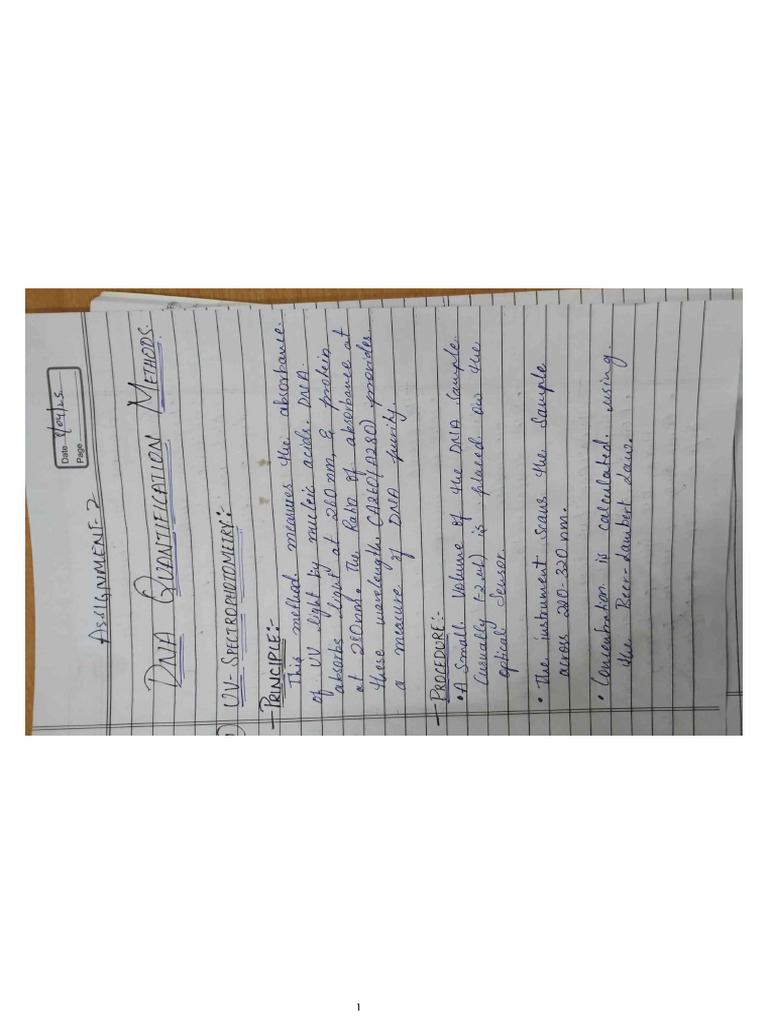 Date 8/04/25
Page
ASSIGNMENT-2
DNA QUANTIFICATION METHODS.
1) UV-SPECTROPHOTOMETRY:-
- PRINCIPLE:-
This method measures the absorbance
of UV light by nucleic acids. DNA
absorbs light at 260nm, & protein
at 280nm. The Ratio of absorbance at
these wavelength (A260/A280) provides
a measure of DNA purity.
- PROCEDURE:-
• A Small Volume of the DNA Sample
(usually 1-2ul) is placed on the
optical Sensor
• The instrument Scans the Sample
across 220-320nm.
• Concentration is calculated using
the Beer-Lambert Law.
1